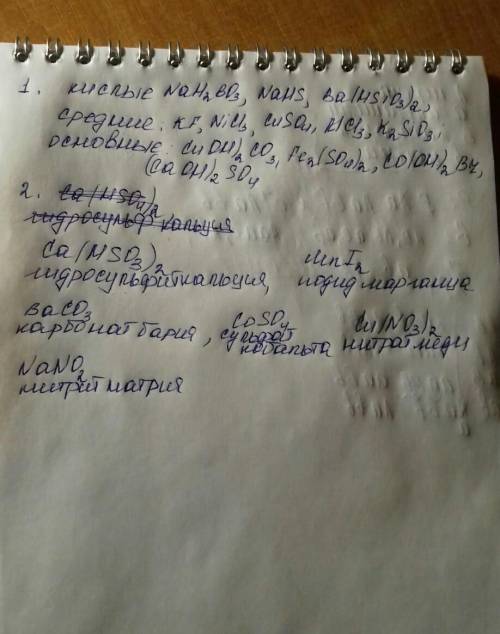 1. кислые NaH₂BO₃, NaHS, Ba(HSiO₃)₂,
средние: KF, NiCl₃, CuSO₄, AlCl₃, K₂SiO₃;
основные: (CuOH)₂CO₃, Fe₂(SO₄)₂, CO(OH)₂ Br,
(CaOH)₂SO₄
2. Ca(HSO₄)₂
гидросульф кальция
Ca(HSO₃)₂ MnI₂
гидросульфит кальция, иодид марганца
BaCO₃ CoSO₄ Cu(NO₃)₂
карбонат бария, сульфат кобальта нитрат меди
NaNO₂
нитрит натрия